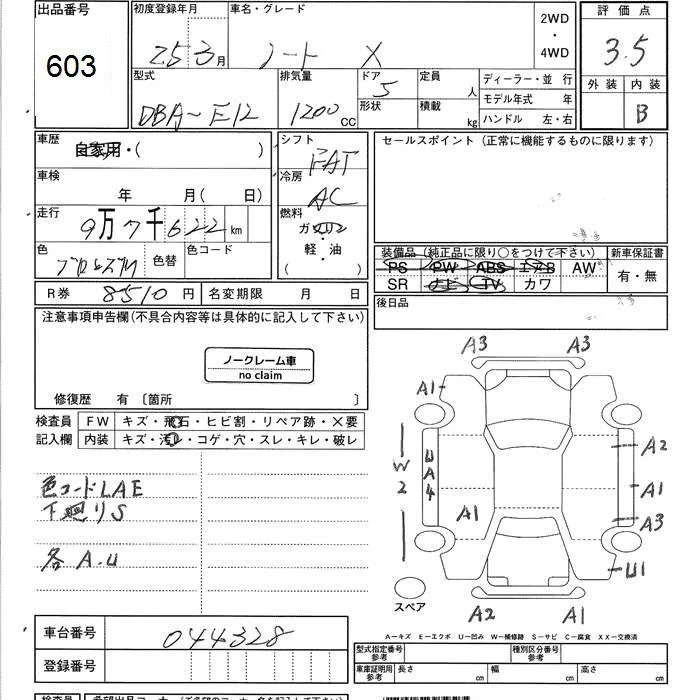 出品番号 初度登録年月 車名・グレード 2WD・4WD 評価点
603 25 3月 ノート X 3.5
外装 内装
B
型式 排気量 ドア 定員 ディーラー・並行
DBA-E12 1200 CC 5 人 モデル年式 年
形状 積載 kg ハンドル 左・右
車歴 自家用・( ) シフト FAT セールスポイント (正常に機能するものに限ります)
車検 年 月( 日) 冷房 AC
走行 9万7千622km 燃料 ガソリン・軽・油・( )
色 色替 色コード
装備品 (純正品に限り○をつけて下さい) 新車保証書
PS PW ABS エアB AW 有・無
SR ナビ TV カワ
R券 8510円 名変期限 月 日 後日品
注意事項申告欄(不具合内容等は具体的に記入して下さい)
ノークレーム車
no claim
修復歴 有〔箇所 〕
検査員 FW キズ・飛石・ヒビ割・リペア跡・X要
記入欄 内装 キズ・汚レ・コゲ・穴・スレ・キレ・破レ
色コードLAE
下廻りS
各A.U
A3 A3
A1
A2
W2 UA4
A1
A1
A3
U1
スペア
A2 A1
A-キズ E-エクボ U-凹み W-補修跡 S-サビ C-腐食 XX-交換済
車台番号 044328
登録番号
型式指定番号 参考 種別区分番号 参考
車庫証明用 参考 長さ cm 幅 cm 高さ cm